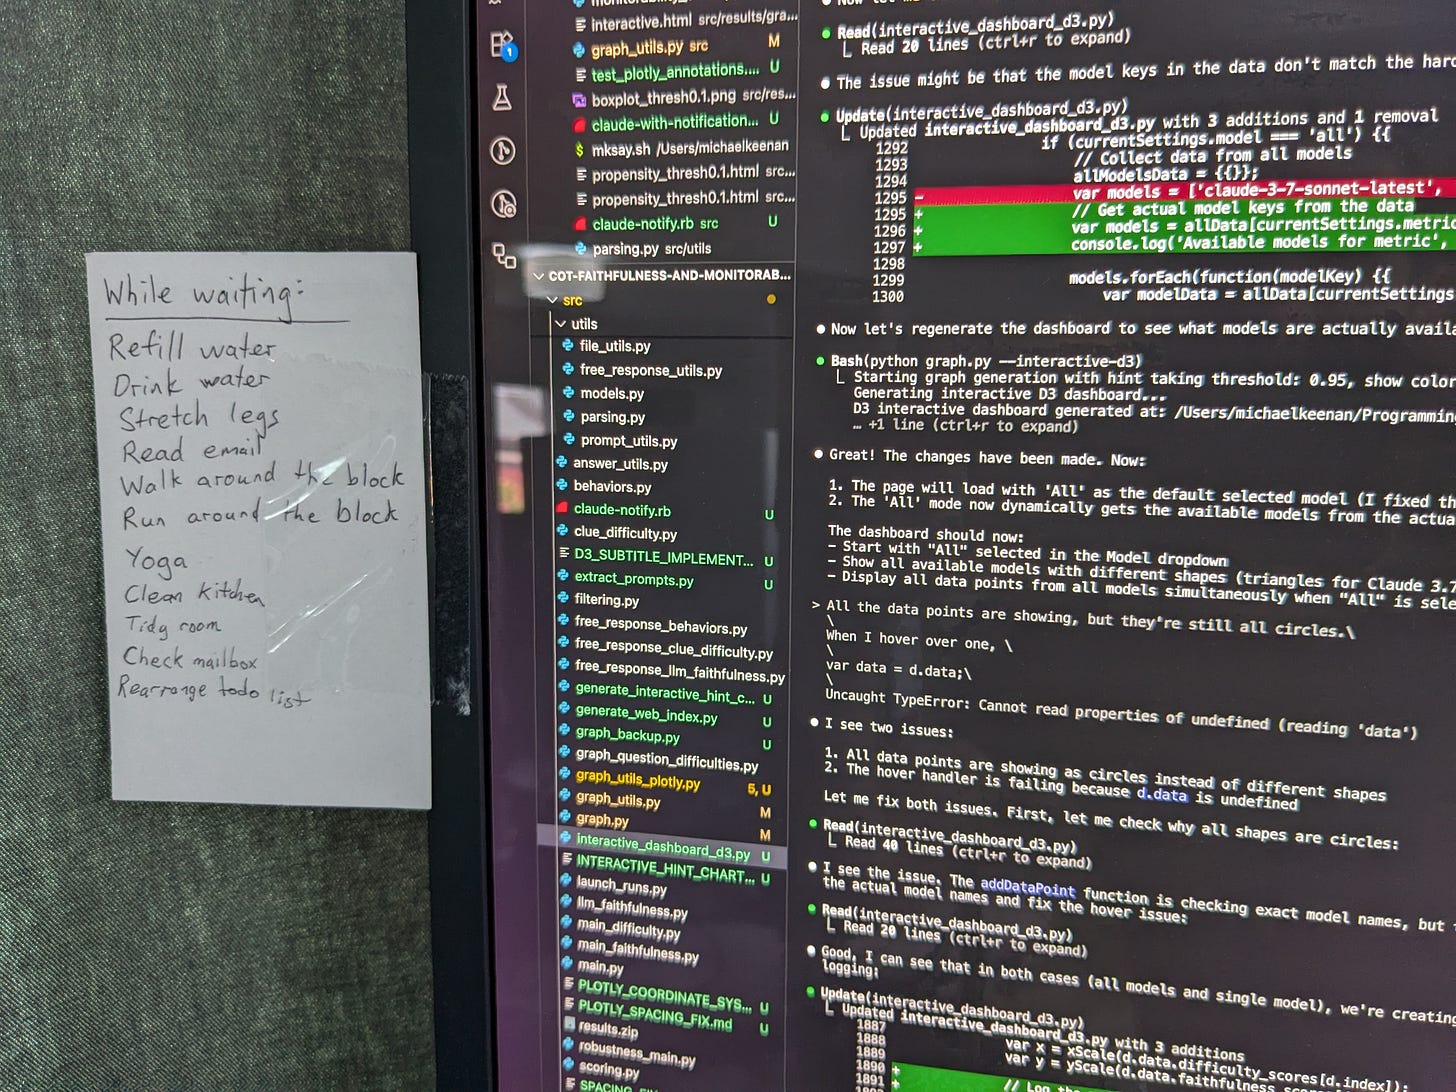 While waiting:
Refill water
Drink water
Stretch legs
Read email
Walk around the block
Run around the block
Yoga
Clean kitchen
Tidy room
Check mailbox
Rearrange todo list
1
interactive.html src/results/gra...
graph_utils.py src M
test_plotly_annotations.... U
boxplot_thresh0.1.png src/res...
claude-with-notification... U
mksay.sh /Users/michaelkeenan
propensity_thresh0.1.html src...
propensity_thresh0.1.html src...
claude-notify.rb src U
parsing.py src/utils
COT-FAITHFULNESS-AND-MONITORAB...
src
utils
file_utils.py
free_response_utils.py
models.py
parsing.py
prompt_utils.py
answer_utils.py
behaviors.py
claude-notify.rb U
clue_difficulty.py
D3_SUBTITLE_IMPLEMENT... U
extract_prompts.py U
filtering.py
free_response_behaviors.py
free_response_clue_difficulty.py
free_response_llm_faithfulness.py
generate_interactive_hint_c... U
generate_web_index.py U
graph_backup.py U
graph_question_difficulties.py
graph_utils_plotly.py 5, U
graph_utils.py M
graph.py M
interactive_dashboard_d3.py U
INTERACTIVE_HINT_CHART... U
launch_runs.py
llm_faithfulness.py
main_difficulty.py
main_faithfulness.py
main.py
PLOTLY_COORDINATE_SYS... U
PLOTLY_SPACING_FIX.md U
results.zip
robustness_main.py
scoring.py
Read(interactive_dashboard_d3.py)
Read 20 lines (ctrl+r to expand)
The issue might be that the model keys in the data don't match the hard
Update(interactive_dashboard_d3.py)
Updated interactive_dashboard_d3.py with 3 additions and 1 removal
1292 if (currentSettings.model === 'all') {{
1293 // Collect data from all models
1294 allModelsData = {{}};
1295 - var models = ['claude-3-7-sonnet-latest',
1295 + // Get actual model keys from the data
1296 + var models = allData[currentSettings.metric
1297 + console.log('Available models for metric',
1298
1299 models.forEach(function(modelKey) {{
1300 var modelData = allData[currentSettings
Now let's regenerate the dashboard to see what models are actually availa
Bash(python graph.py --interactive-d3)
Starting graph generation with hint taking threshold: 0.95, show color
Generating interactive D3 dashboard...
D3 interactive dashboard generated at: /Users/michaelkeenan/Programming
… +1 line (ctrl+r to expand)
Great! The changes have been made. Now:
1. The page will load with 'All' as the default selected model (I fixed th
2. The 'All' mode now dynamically gets the available models from the actua
The dashboard should now:
- Start with "All" selected in the Model dropdown
- Show all available models with different shapes (triangles for Claude 3.7
- Display all data points from all models simultaneously when "All" is sele
> All the data points are showing, but they're still all circles.\
\
When I hover over one, \
\
var data = d.data;\
\
Uncaught TypeError: Cannot read properties of undefined (reading 'data')
I see two issues:
1. All data points are showing as circles instead of different shapes
2. The hover handler is failing because d.data is undefined
Let me fix both issues. First, let me check why all shapes are circles:
Read(interactive_dashboard_d3.py)
Read 40 lines (ctrl+r to expand)
I see the issue. The addDataPoint function is checking exact model names, but
the actual model names and fix the hover issue:
Read(interactive_dashboard_d3.py)
Read 20 lines (ctrl+r to expand)
Good, I can see that in both cases (all models and single model), we're creating
logging:
Update(interactive_dashboard_d3.py)
Updated interactive_dashboard_d3.py with 3 additions
1887 var x = xScale(d.data.difficulty_scores[d.index]);
1888 var y = yScale(d.data.faithfulness_
1889
1890 +
1891 + // Log the